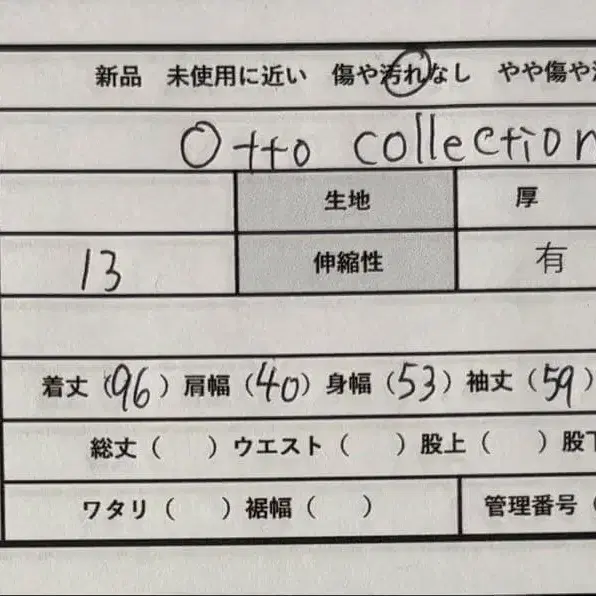 新品 未使用に近い 傷や汚れなし やや傷や
Otto collection
生地 厚
13 伸縮性 有
着丈（96）肩幅（40）身幅（53）袖丈（59）
総丈（ ）ウエスト（ ）股上（ ）股下
ワタリ（ ）裾幅（ ） 管理番号（